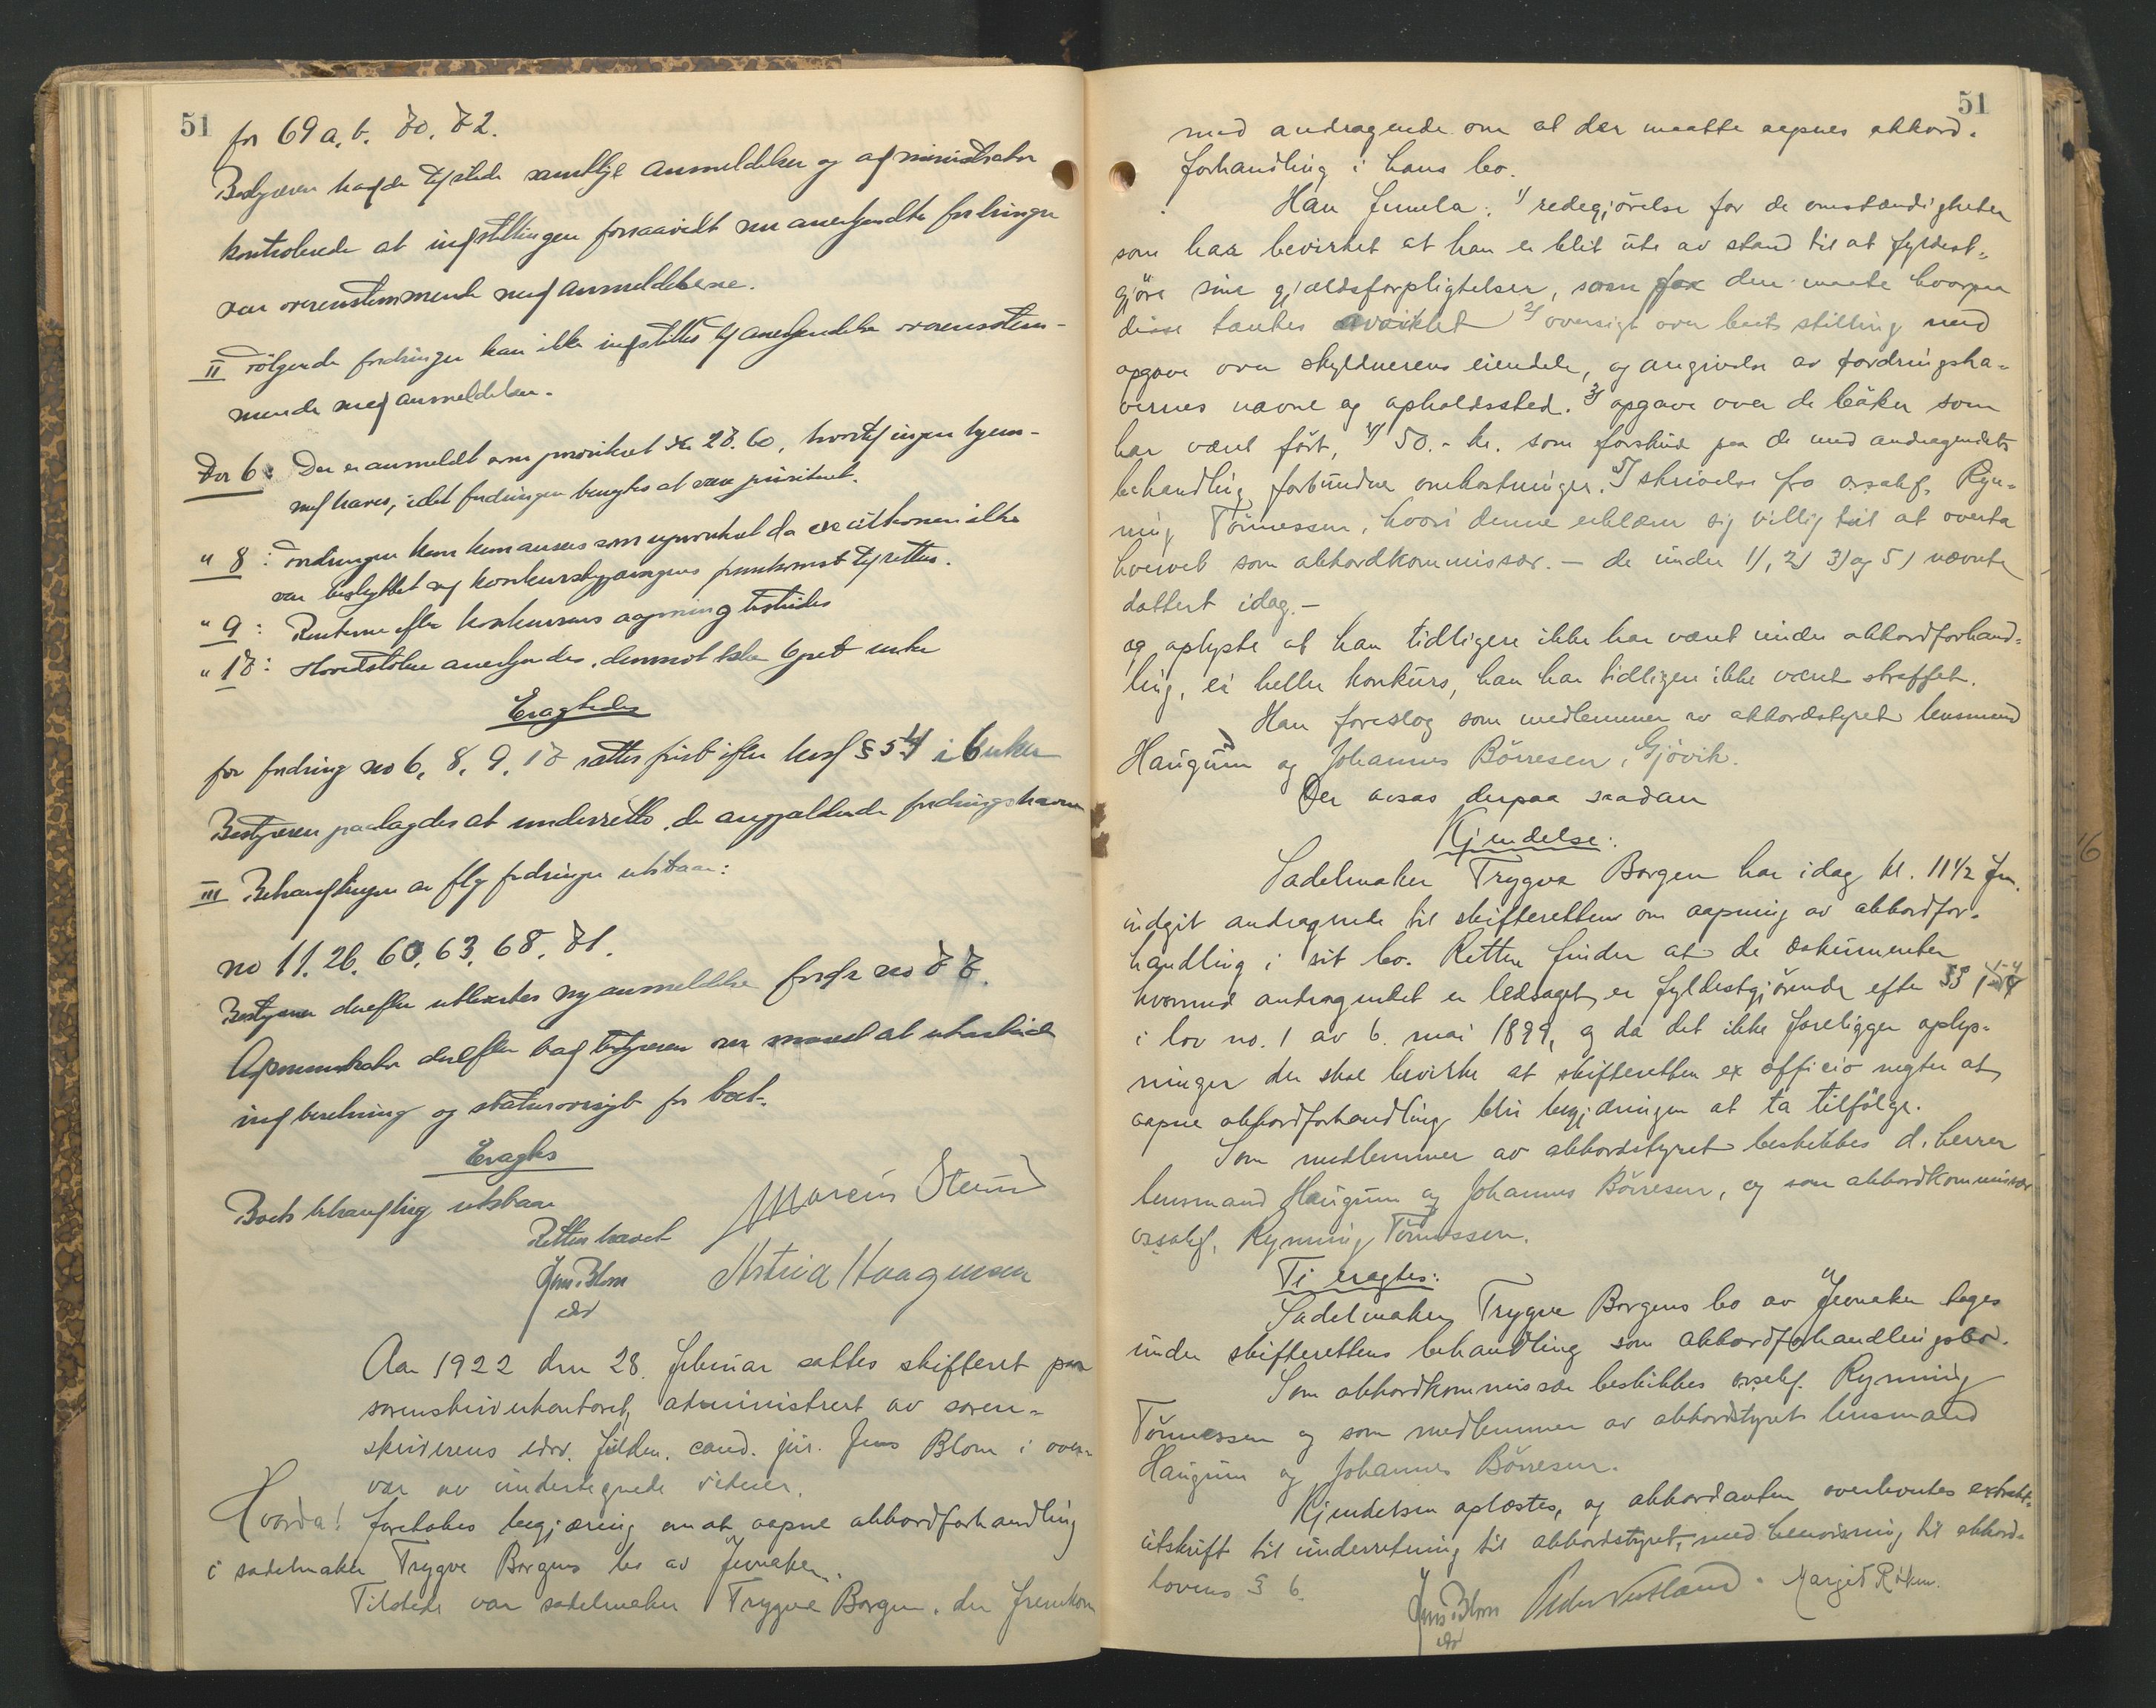 51
for 69 a, b. 70. 72.
Bestyreren hadde tilstede samtlige anmeldelser og administrator
kontrolerede at indstillingen forsaavidt nu anerkjendte fordringer
var overensstemmende med anmeldelserne.
II Følgende fordringer kan ikke indstilles til anerkjendelse overensstem-
mende med anmeldelsen.
For 6: Der er anmeldt som prioritert kr 28.60, hvortil ingen hjem-
mel haves, idet fordringen benegtes at være prioritert.
" 8: Fordringen kan kun ansees som uprioritert da executionen ikke
var besluttet ved konkursbegjæringens fremkomst til retten.
" 9: Renterne efter konkursens aapning bestrides
" 17: Hovedstolen anerkjendes, derimot ikke
Eragtedes
for fordring no 6, 8, 9, 17 sættes frist efter § 54 i 6 uker
Bestyreren paalagdes at underrette de angjældende fordringshavere
III Behandlingen av flg fordringer utstaar:
no 11. 26. 60. 63. 68. 71.
Bestyreren derefter utlevertes ny anmeldelse fordr no 77.
Administrator derefter bad bestyreren om snarest at utarbeide
indberetning og statusoversigt for boet.
Eragtes
Boets behandling utstaar
Retten hævet
Jens Blom
edv
Marcus Steund
Astrid Haagensen
Aar 1922 den 28. februar sattes skifteret paa
sorenskriverkontoret, administrert av soren-
skriverens edsv. fuldm. cand. jur. Jens Blom i over-
vær av undertegnede vidner.
Hvorda! foretokes begjæring om at aapne akkordforhandling
i sadelmaker Trygve Borgens bo av Jevnaker.
Tilstede var sadelmaker Trygve Borgen, der fremkom
51
med andragende om at der maatte aapnes akkord-
forhandling i hans bo.
Han fremla: 1) redegjörelse for de omstændigheter
som har bevirket at han er blit ute av stand til at fyldest-
gjöre sine gjældsforpligtelser, samt for den maate hvorpaa
disse tænkes avviklet 2) oversigt over boets stilling med
opgave over skyldnerens eiendele, og angivelse av fordringsha-
vernes navne og opholdssted. 3) opgave over de böker som
har været fört, 4) 50.- kr. som forskud paa de med andragendets
behandling forbundne omkostninger. 5) skrivelse fra o.r.sakf. Ryn-
ning Tönnessen, hvori denne erklærer sig villig til at overta
hvervet som akkordkommissær. - de under 1), 2) 3) og 5) nævnte
datert idag.-
og oplyste at han tidligere ikke har været under akkordforhand-
ling, ei heller konkurs, han har tidligere ikke været straffet.
Han foreslog som medlemmer av akkordstyret lensmand
Haugum og Johannes Börresen, Gjövik.
Der avsas derpaa saadan
Kjendelse:
Sadelmaker Trygve Borgen har idag kl. 11 1/2 fm.
indgit andragende til skifteretten om aapning av akkordfor-
handling i sit bo. Retten finder at de dokumenter
hvormed andragendet er ledsaget, er fyldestgjörende efter §§ 1-4
i lov no. 1 av 6. mai 1899, og da det ikke foreligger oplys-
ninger der skal bevirke at skifteretten ex officio negter at
aapne akkordforhandling blir begjæringen at ta tilfölge.
Som medlemmer av akkordstyret beskikkes d'herrer
lensmand Haugum og Johannes Börresen, og som akkordkommissær
o.r.sakf. Rynning Tönnessen.
Ti eragtes:
Sadelmaker Trygve Borgens bo av Jevnaker tages
under skifterettens behandling som akkordforhandlingsbo.
Som akkordkommissær beskikkes o.r.sakf. Rynning
Tönnessen og som medlemmer av akkordstyret lensmand
Haugum og Johannes Börresen.
Kjendelsen oplæstes, og akkordanten overleveres extrakt-
utskrift til underretning til akkordstyret, med henvisning til akkord-
lovens § 6.
Jens Blom
edv
Margit Röken.
16